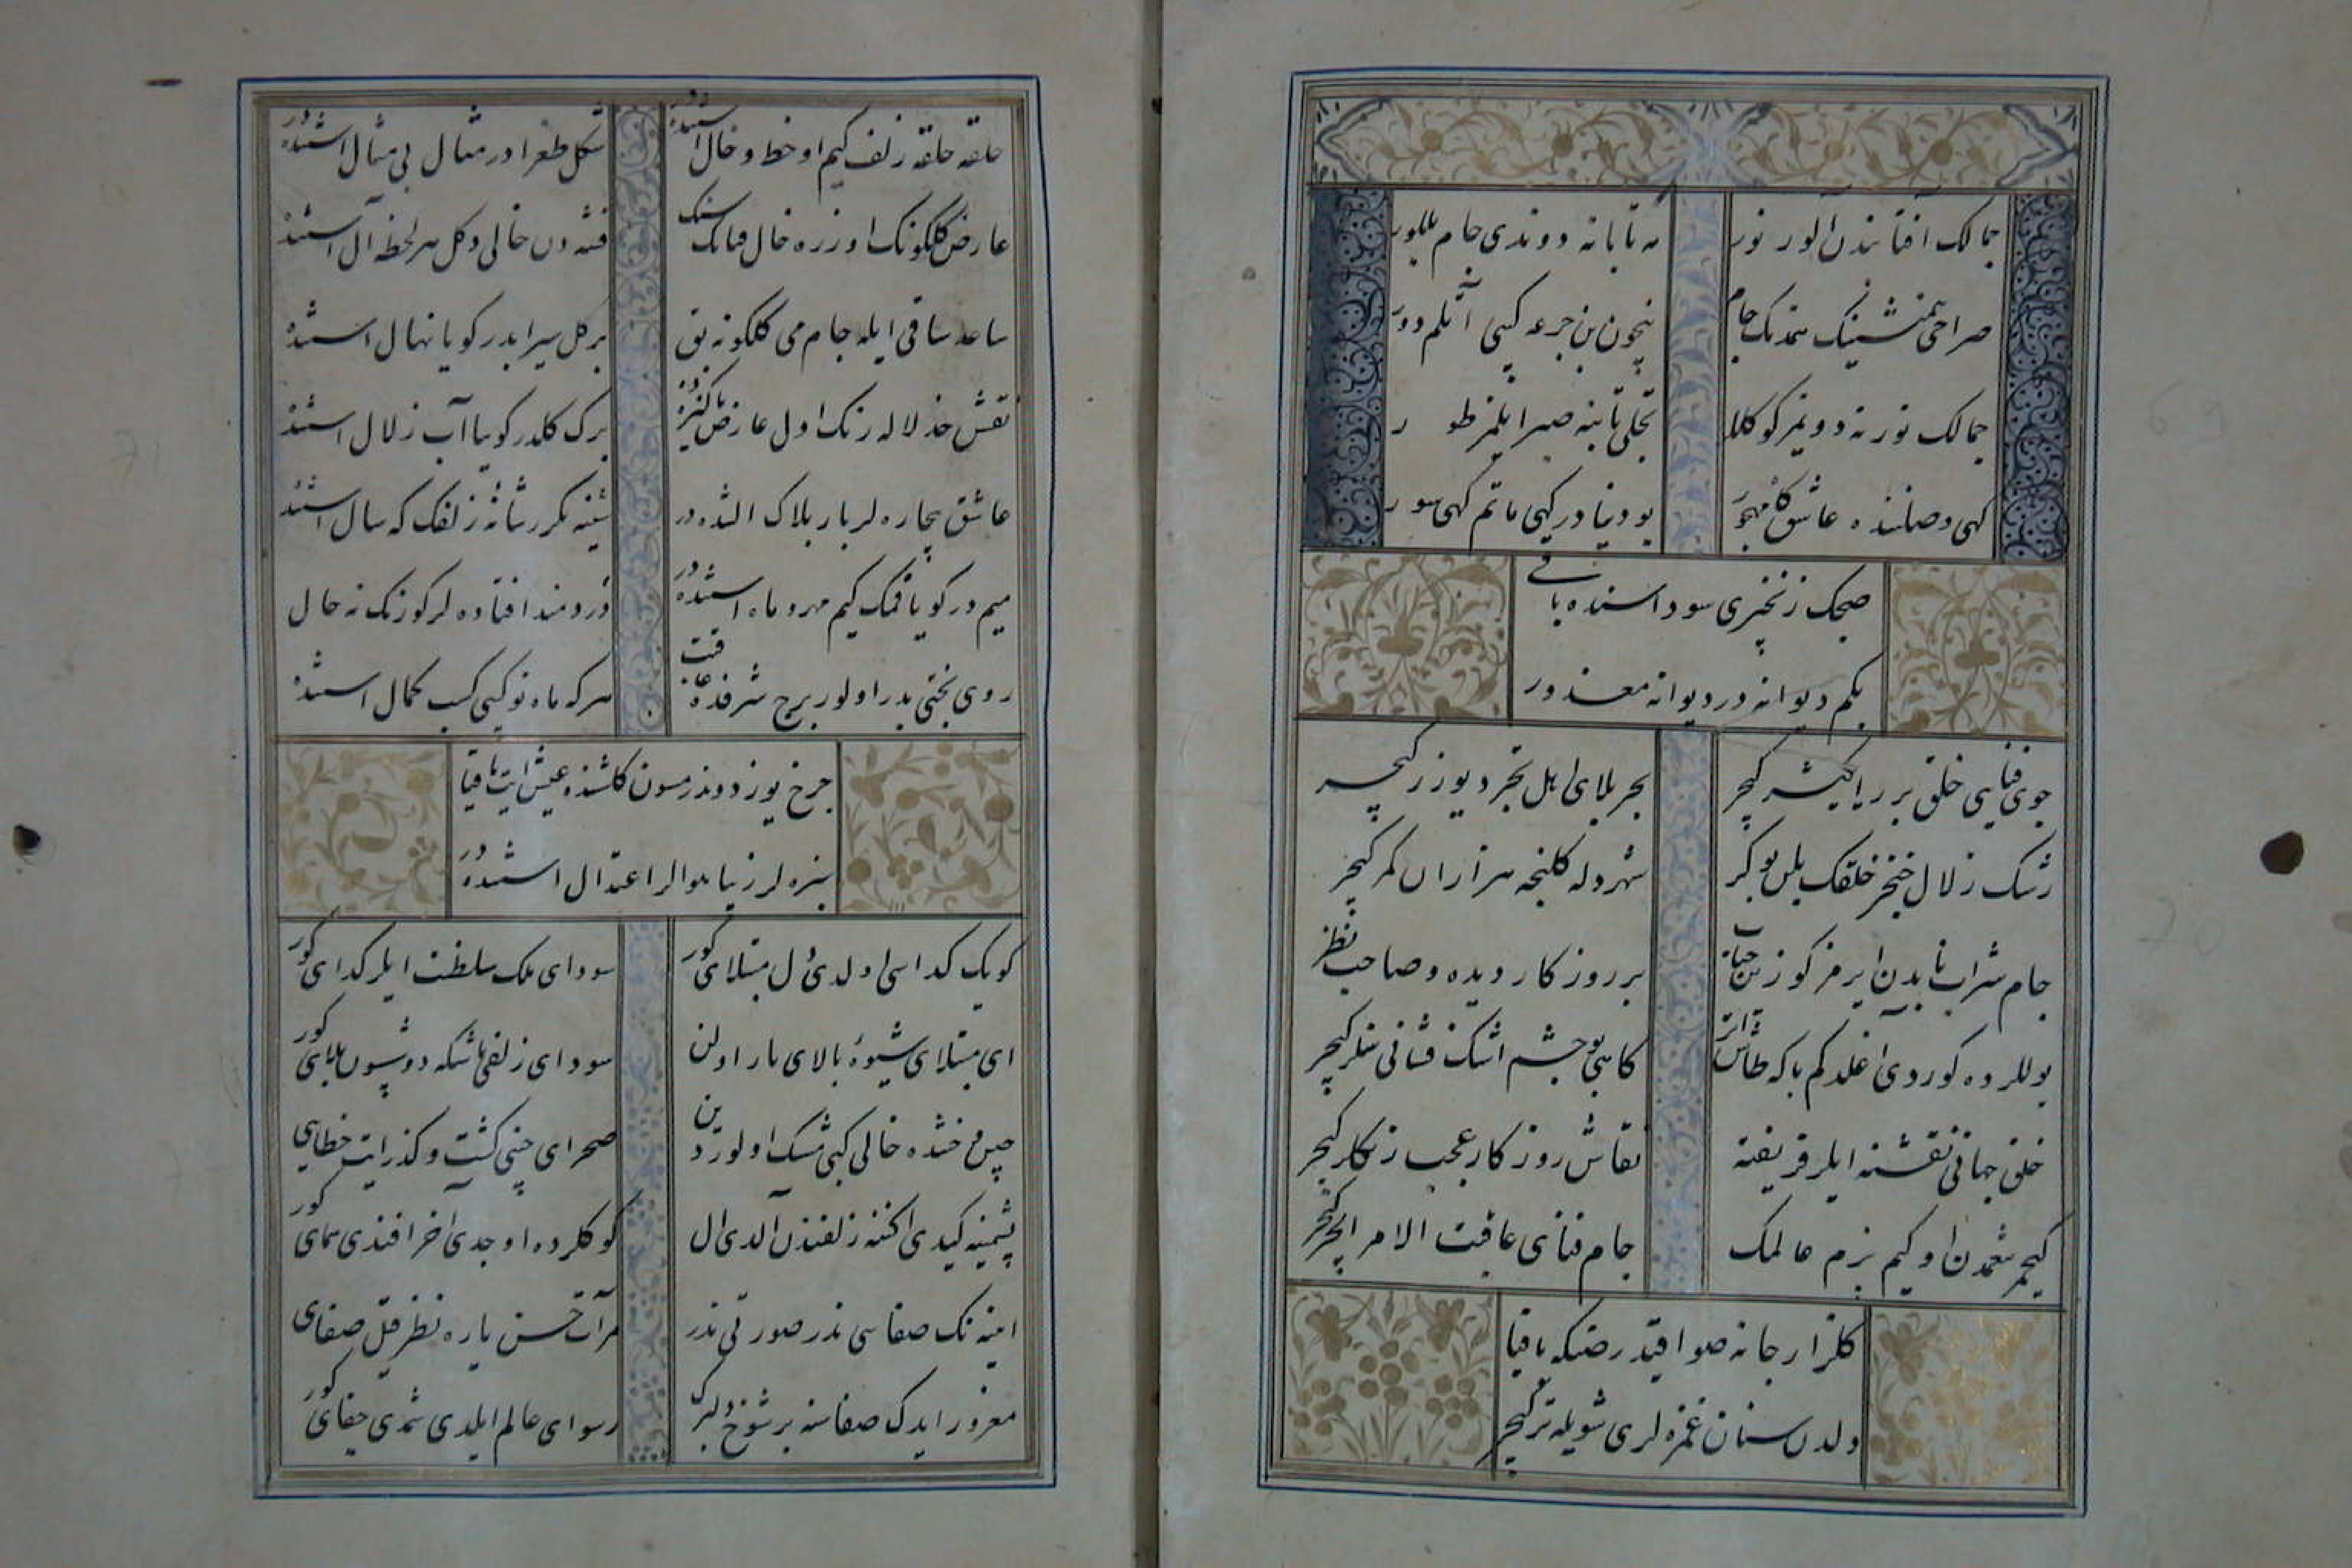 جمالك آفتابندن آلور نور
مه تابانه دوندی جام بللور
صراحی همنشینك همدمك جام
نیچون بن جرعه كبی آتلم دور
جمالك نورنه دویمز كوكللر
تجلی تابنه صبر ایلمز طور
كهی وصلنده عاشق كاه مهجور
بو دنیادر كهی ماتم كهی سور
صچك زنجیری سوداسنده باقی
بكم دیوانه در دیوانه معذور
جوی فنایی خلق برر ایكیشر كیچر
بحر بلای اهل تجرد یوزر كیچر
رشك زلال خنجر خلقك بلن بوكر
شهر دله كلنجه هزاران كمر كیچر
جام شراب نابدن ایرمز كوزین حباب
بر روزكار دیده و صاحب نظر
یوللرده كوردی اغلدكم باكه طاش اتر
كاهی بو چشم اشك فشانی سلر كیچر
خلق جهانی نقشنه ایلر فریفته
نقاش روزكار عجب رنكلر كیچر
كیچمز نعمدن او كیم بزم عالمك
جام فنانی عاقبت الامر ایچر كیچر
كلزار جانه صو اقیدر صنكه باقیا
دلدن سنان غمزه لری شویله تر كیچر
حلقه حلقه زلف كیم او خط و خال استنده در
شكل طغرادر مثال بی مثال استنده در
عارض كلكونك اوزره خال فتانك سنك
فتنه دن خالی دكل هر لحظه آل استنده
ساعد ساقی ایله جام می كلكونه بق
بر كل سیرابدر كویا نهال استنده
نقش خد لاله رنك اول عارض پاكیزه ده
برك كلدر كویا آب زلال استنده
عاشق بیچاره لر بار بلاك التنده در
شینه بكرر شانه زلفك كه سال استنده
میم در كویا فمك كیم مهر و ماه استنده در
دردمند افتاده لر كوزنك نه حال
روی بختی بدر اولور برج شرفده عاقبت
هر كه ماه نو كبی كسب كمال استنده
چرخ یوز دوندرمسون كلشنده عیش ایت باقیا
سبزه لر زیبا هوالر اعتدال استنده در
كویك كداسی اولدی كوكل مبتلایی كور
سودای ملك سلطنت ایلر كدایی كور
ای مبتلای شیوه بالای یار اولن
سودای زلفی باشكه دوشسون بلایی كور
چین خنده خالی كبی مشك اولوردین
صحرای چینی كشت و كذر ایت خطایی
پشمینه كیدی اكننه زلفندن آلدی ال
كوكلرده اوجدی آخر افندی همای كور
آیینه نك صفاسی ندر صورتی ندر
مرآت حسن یاره نظر قیل صفایی
مغرور ایدك صفاسنه بر شوخ دلبرك
رسوای عالم ایلدی شمدی جفایی كور